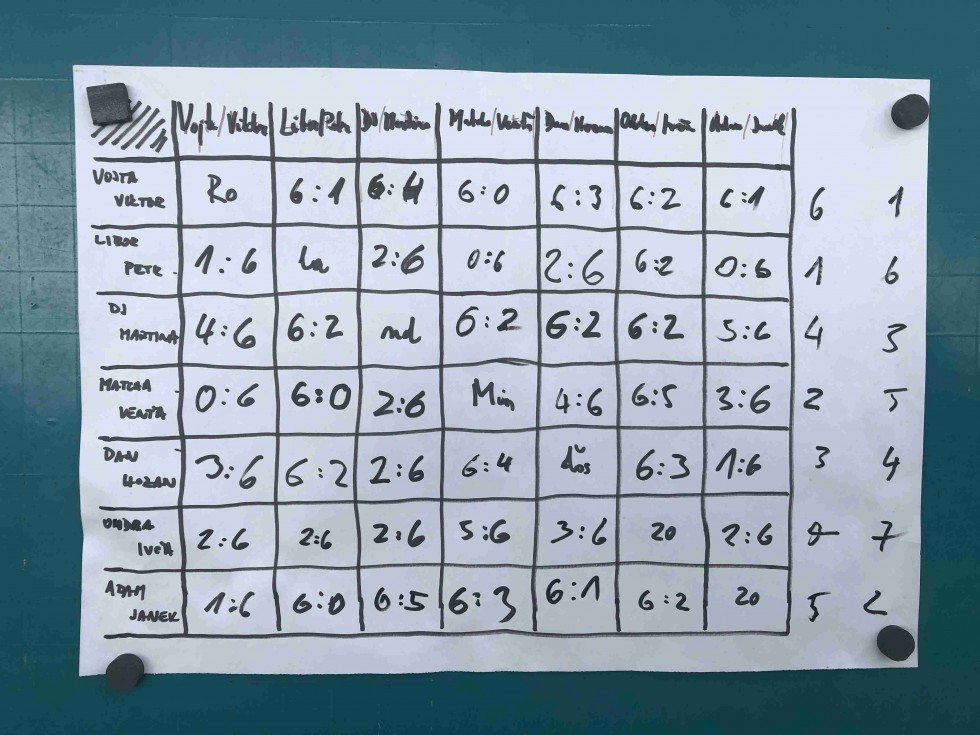 Vojta/Viktor Libor/Petr DJ/Martina Matcha/Venta Dan/Honza Ondra/Iveta Adam/Janek
VOJTA Ro 6:1 6:4 6:0 6:3 6:2 6:1 6 1
VIKTOR
LIBOR 1:6 la 2:6 0:6 2:6 6:2 0:6 1 6
PETR
DJ 4:6 6:2 nd 6:2 6:2 6:2 5:6 4 3
MARTINA
MATCHA 0:6 6:0 2:6 Min 4:6 6:5 3:6 2 5
VENTA
DAN 3:6 6:2 2:6 6:4 ďos 6:3 1:6 3 4
HONZA
ONDRA 2:6 2:6 2:6 5:6 3:6 20 2:6 0 7
IVETA
ADAM 1:6 6:0 6:5 6:3 6:1 6:2 20 5 2
JANEK